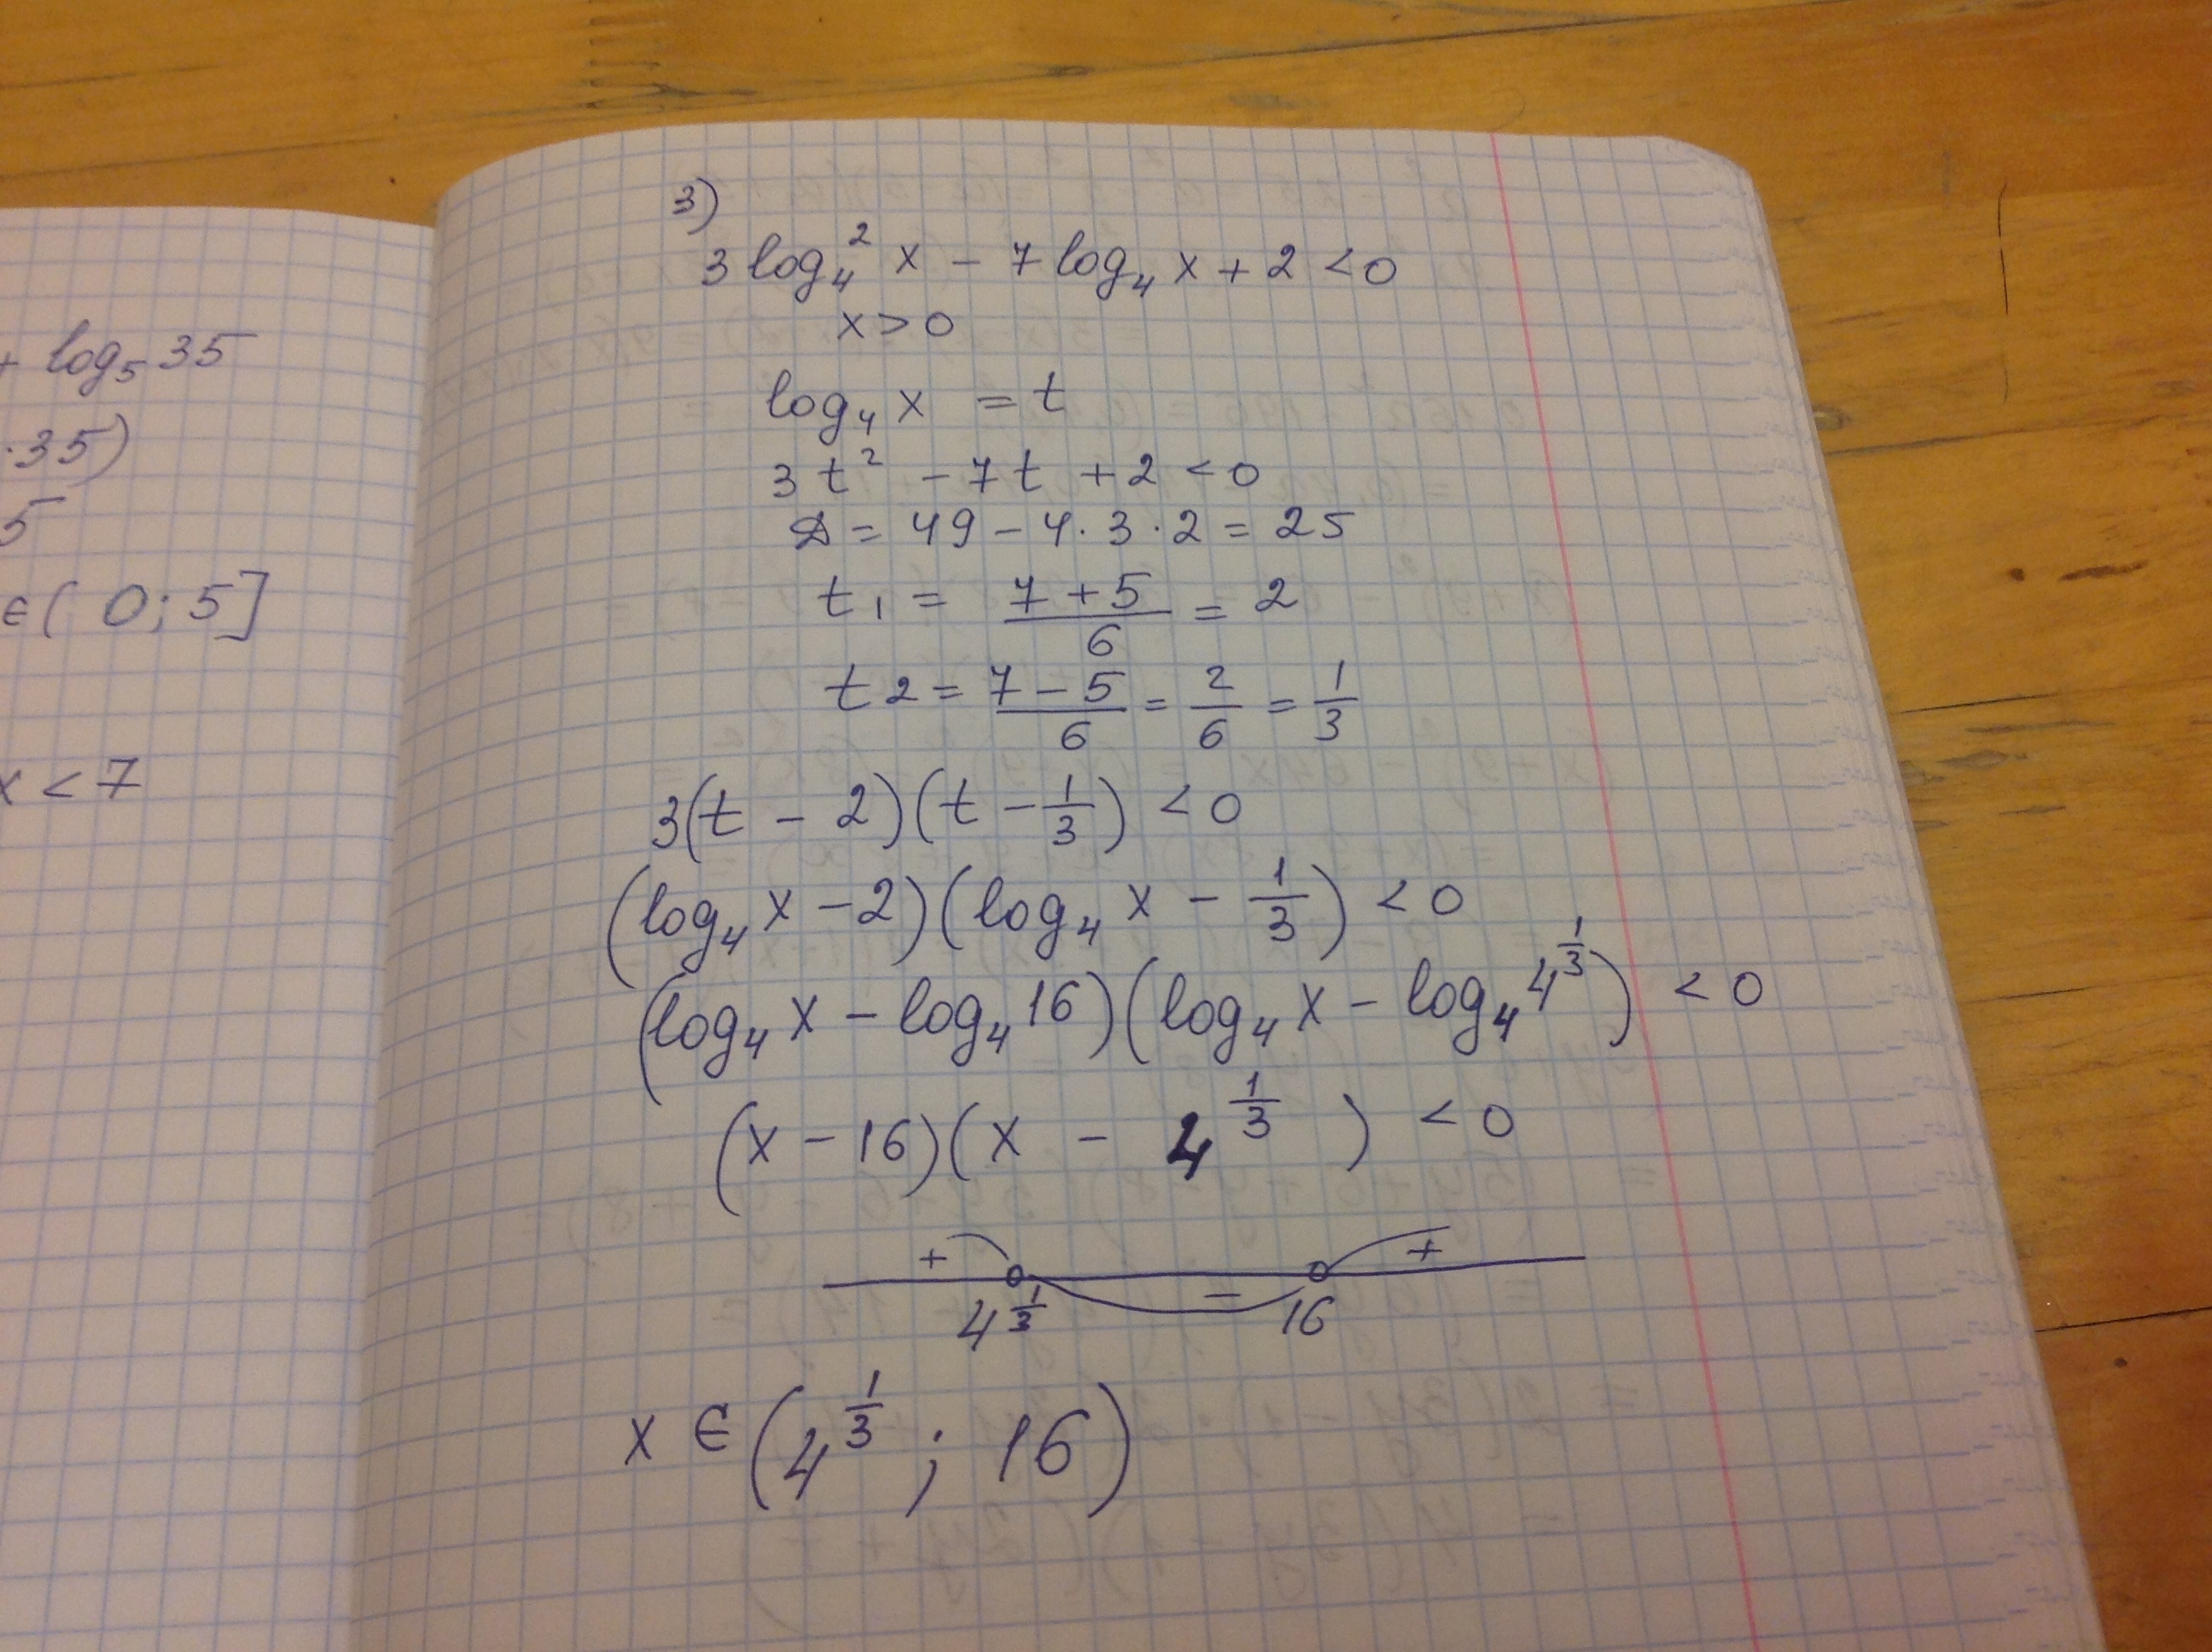 + log₅ 35
·35)
5
∈( 0; 5]
x < 7
3)
3 log₄² x − 7 log₄ x + 2 < 0
x > 0
log₄ x = t
3 t² − 7 t + 2 < 0
D = 49 − 4 · 3 · 2 = 25
t₁ = (7 + 5)/6 = 2
t2 = (7 − 5)/6 = 2/6 = 1/3
3(t − 2)(t − 1/3) < 0
(log₄ x − 2)(log₄ x − 1/3) < 0
(log₄ x − log₄ 16)(log₄ x − log₄ 4^(1/3)) < 0
(x − 16)(x − 4^(1/3)) < 0
+ − +
4^(1/3) 16
x ∈ (4^(1/3) ; 16)